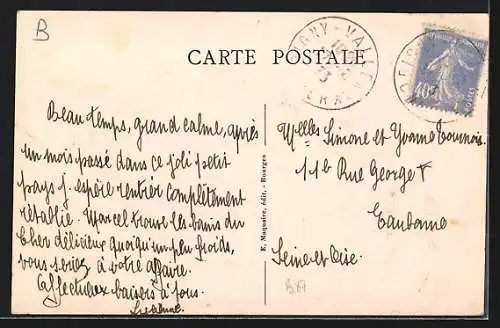 B
CARTE POSTALE
40
Beau temps, grand calme, après
un mois passé dans ce joli petit
pays j. espère rentrer complètement
rétablie. Marcel trouve les bains du
Cher délicieux quoiqu'un peu froids,
vous seriez à votre affaire.
Affectueux baisers à tous.
Suzanne.
E. Maquaire, édit. - Bourges
Melles Simone et Yvonne
11b Rue George V
Eaubonne
Seine et Oise.
B87